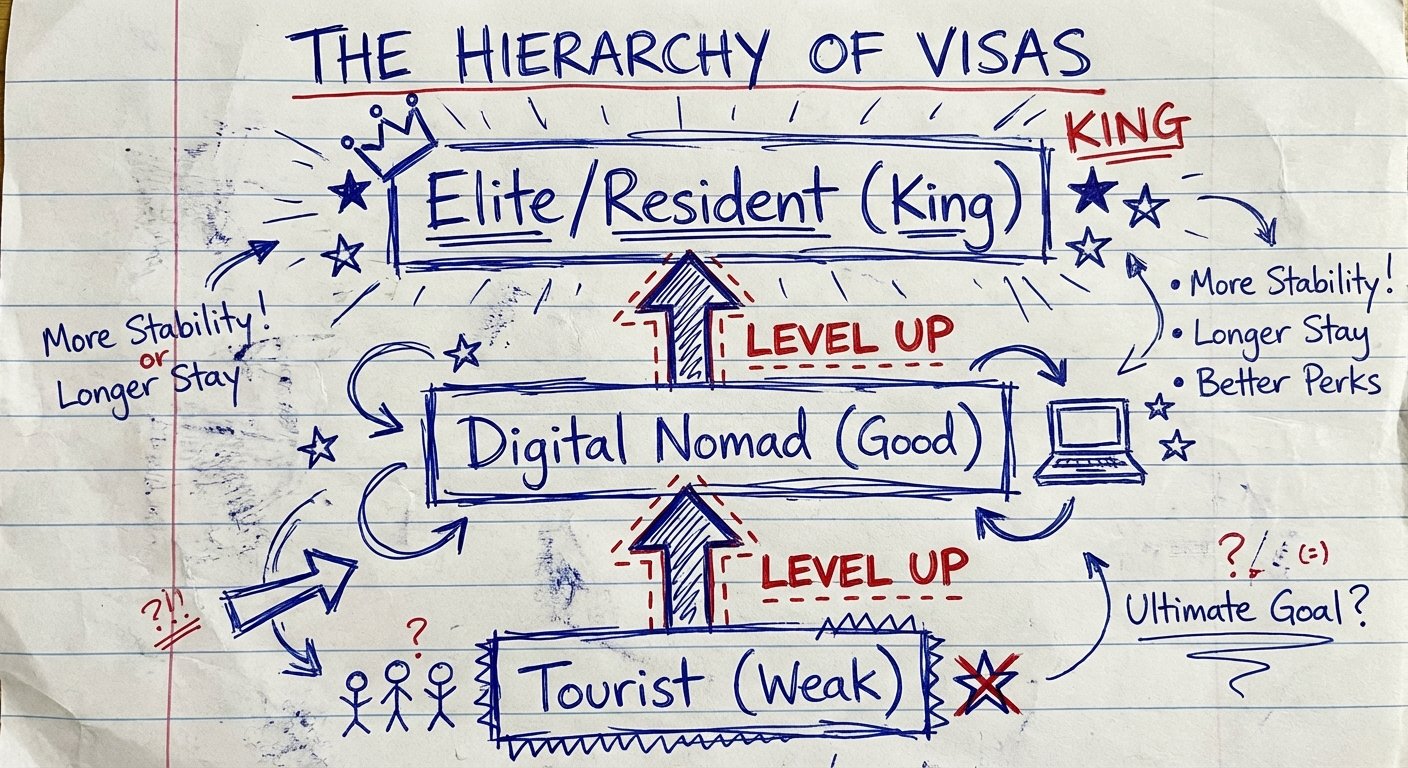 THE HIERARCHY OF VISAS
KING
Elite/Resident (King)
More Stability!
or
Longer Stay
• More Stability!
• Longer Stay
• Better Perks
LEVEL UP
Digital Nomad (Good)
LEVEL UP
?!!
?
? ! (=)
Ultimate Goal?
Tourist (Weak)